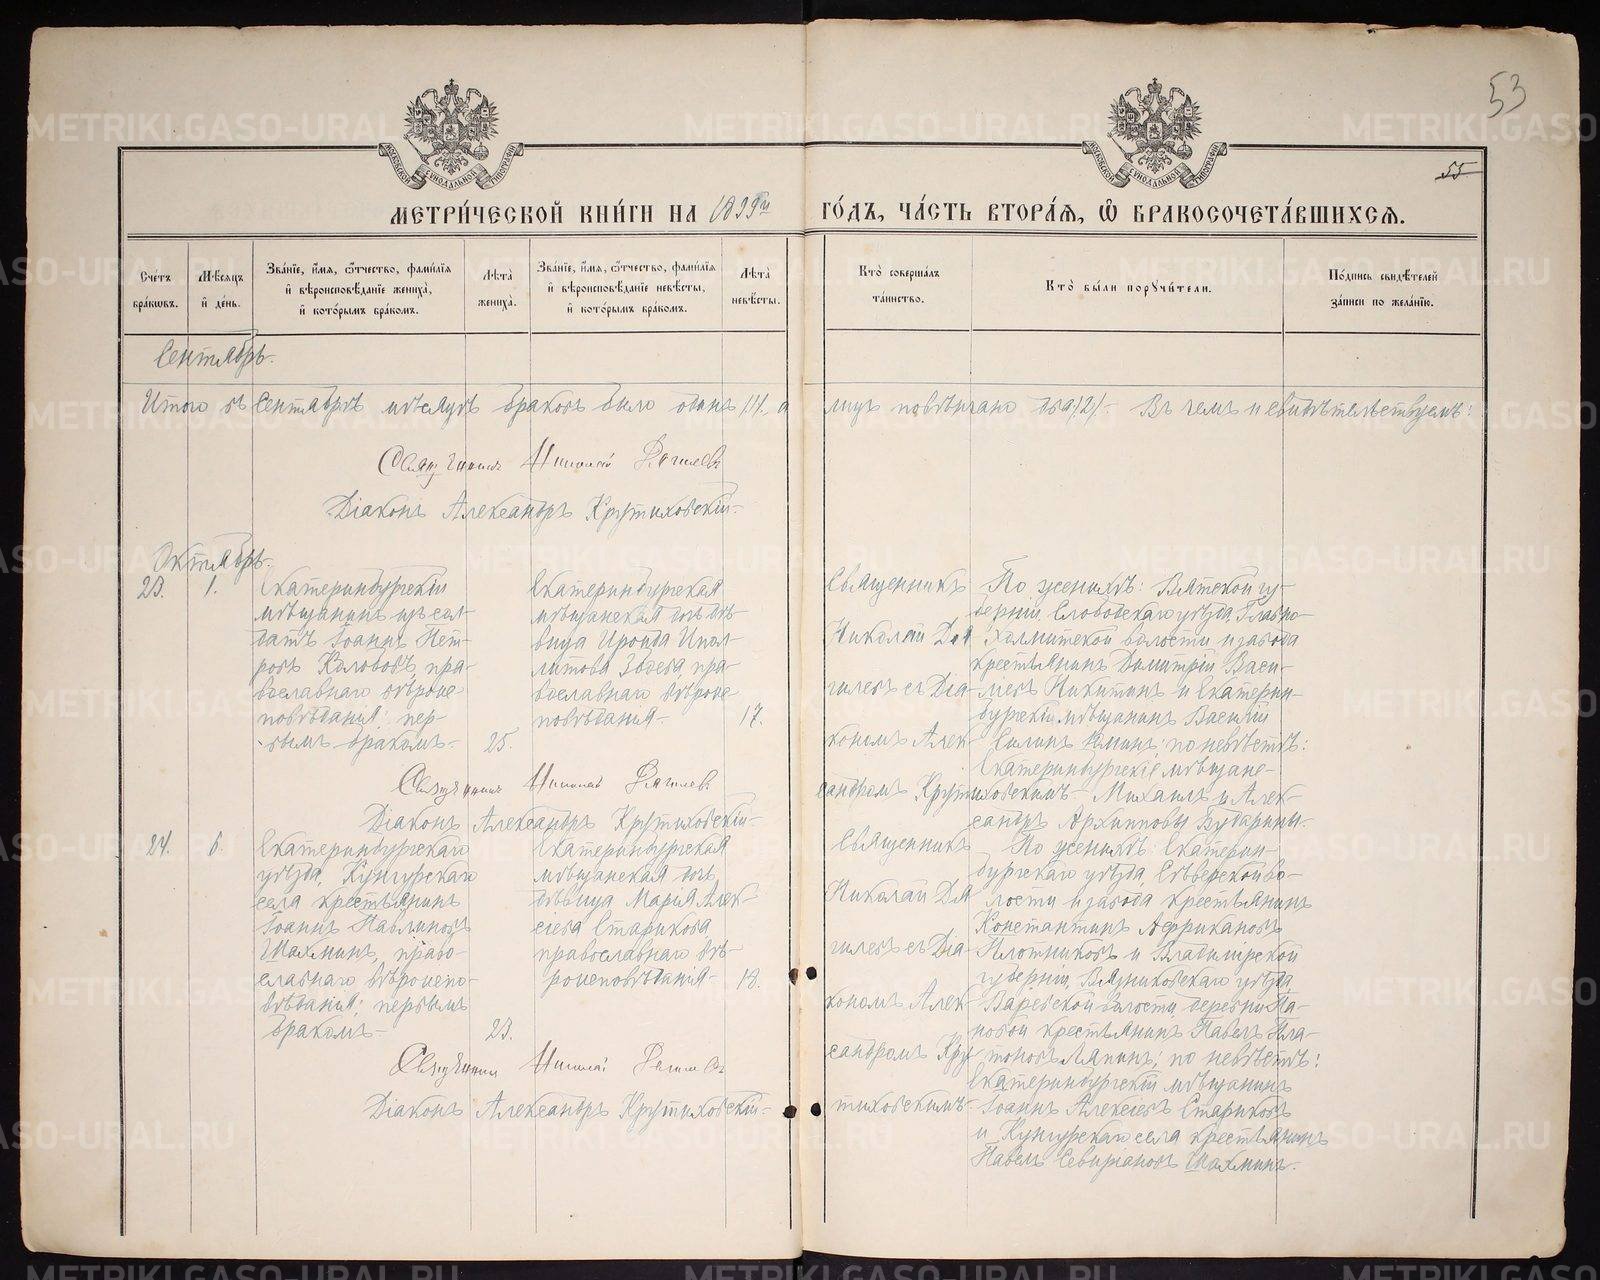 53
55
МОСКОВСКОЙ СѴНОДАЛЬНОЙ ТИПОГРАФІИ
МОСКОВСКОЙ СѴНОДАЛЬНОЙ ТИПОГРАФІИ
МЕТРИ́ЧЕСКОЙ КНИ́ГИ НА 1899й ГО́ДЪ, ЧА́СТЬ ВТОРА́Я, Ѡ БРАКОСОЧЕТА́ВШИХСЯ.
Сче́тъ бра́ковъ.
Мѣ́сяцъ и де́нь.
Зва́нїе, и́мя, ѻ҆́тчество, фами́лїя и вѣроисповѣ́данїе жениха̀, и кото́рымъ бра́комъ.
Лѣта̀ жениха̀.
Зва́нїе, и́мя, ѻ҆́тчество, фами́лїя и вѣроисповѣ́данїе невѣ́сты, и кото́рымъ бра́комъ.
Лѣта̀ невѣ́сты.
Кто̀ соверша́лъ та́инство.
Кто̀ бы́ли порꙋчи́тели.
По́дпись свидѣ́телей за́писи по жела́нїю.
Сентябрь.
Итого въ Сентябрѣ мѣсяцѣ браковъ было одинъ /1/, а лицъ повѣнчано два /2/. Въ чемъ и свидѣтельствуемъ:
Священникъ Николай Дягилевъ
Діаконъ Александръ Крутиховскій.
Октябрь.
23.
1.
Екатеринбургскій
мѣщанинъ изъ сол-
датъ Іоаннъ Пет-
ровъ Коловобъ, пра-
вославнаго вѣроис
повѣданія; пер-
вымъ бракомъ.
25.
Екатеринбургская
мѣщанская дочь дѣ-
вица Ироида Ипол-
литова Звоева, пра-
вославнаго вѣроис
повѣданія.
17.
Священникъ
Николай Дя
гилевъ съ Діа
кономъ Алек-
сандромъ Крутиховскимъ
По женихѣ: Вятской гу-
берніи, Слободскаго уѣзда, Главно-
Холуницкой волости и завода
крестьянинъ Димитрій Васи-
льевъ Никитинъ и Екатерин-
бургскій мѣщанинъ Василій
Силинъ Юминъ; по невѣстѣ:
Екатеринбургскіе мѣщане-
Михаилъ и Алек-
сандръ Архипповы Бударины.
Священникъ Николай Дягилевъ
Діаконъ Александръ Крутиховскій.
24.
6.
Екатеринбургскаго
уѣзда, Кунгурскаго
села крестьянинъ
Іоаннъ Павлиновъ
Шахминъ, право-
славнаго вѣроиспо-
вѣданія; первымъ
бракомъ.
23.
Екатеринбургская
мѣщанская дочь
дѣвица Марія Алек-
сіева Старикова,
православнаго вѣ-
роисповѣданія.
18.
Священникъ
Николай Дя
гилевъ съ Діа-
кономъ Алек-
сандромъ Кру-
тиховскимъ.
По женихѣ: Екатерин-
бургскаго уѣзда, Сѣверской во-
лости и завода крестьянинъ
Константинъ Африкановъ
Плотниковъ и Владимірской
губерніи, Вязниковскаго уѣзда,
Варевской волости, деревни Па-
новой крестьянинъ Павелъ Пла-
тоновъ Ляпинъ; по невѣстѣ:
Екатеринбургскій мѣщанинъ
Іоаннъ Алексіевъ Стариковъ
и Кунгурскаго села крестьянинъ
Павелъ Севиріановъ Шахминъ.
Священникъ Николай Дягилевъ
Діаконъ Александръ Крутиховскій.
METRIKI.GASO-URAL.RU